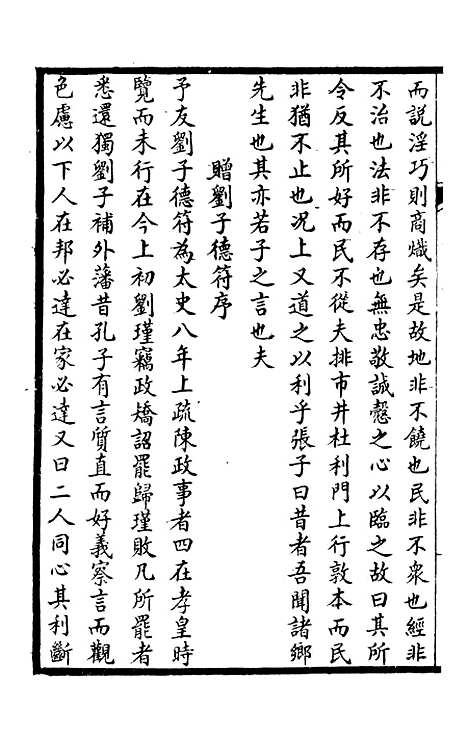 而說淫巧則商熾矣是故地非不饒也民非不衆也經非
不治也法非不存也無忠敬誠慤之心以臨之故曰其所
令反其所好而民不從夫排市井杜利門上行敦本而民
非猶不止也况上又道之以利乎張子曰昔者吾聞諸鄉
先生也其亦若子之言也夫
贈劉子德符序
予友劉子德符為太史八年上疏陳政事者四在孝皇時
覽而未行在今上初劉瑾竊政矯詔罷歸瑾敗凡所罷者
悉還獨劉子補外藩昔孔子有言質直而好義察言而觀
色慮以下人在邦必達在家必達又曰二人同心其利斷